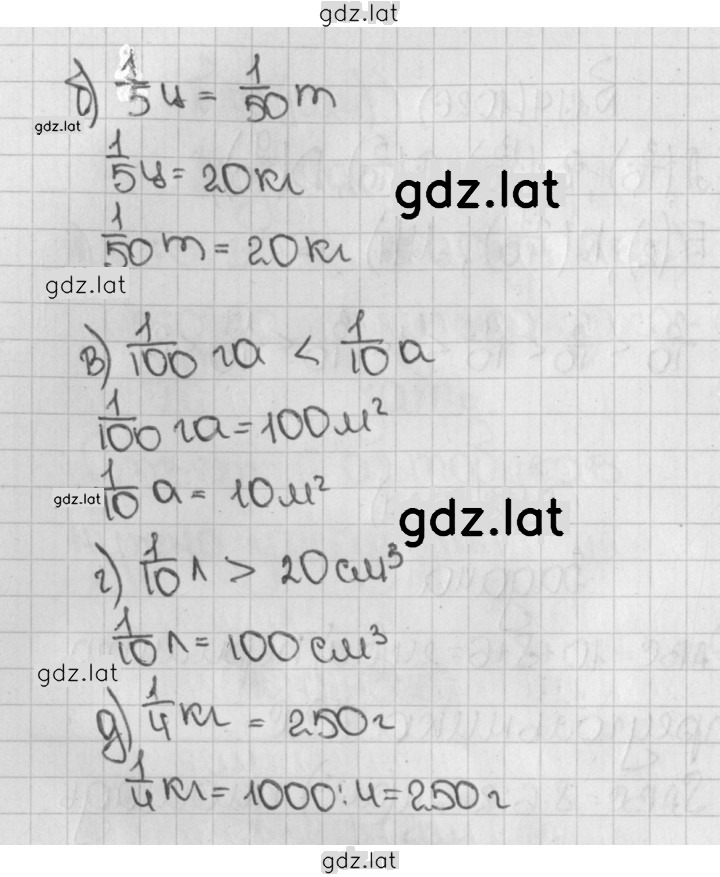 gdz.lat
б) 1/5 ц = 1/50 т
gdz.lat
1/5 ц = 20 кг
gdz.lat
1/50 т = 20 кг
gdz.lat
в) 1/100 га < 1/10 а
1/100 га = 100 м²
gdz.lat
1/10 а = 10 м²
gdz.lat
г) 1/10 л > 20 см³
1/10 л = 100 см³
gdz.lat
д) 1/4 кг = 250 г
1/4 кг = 1000 : 4 = 250 г
gdz.lat